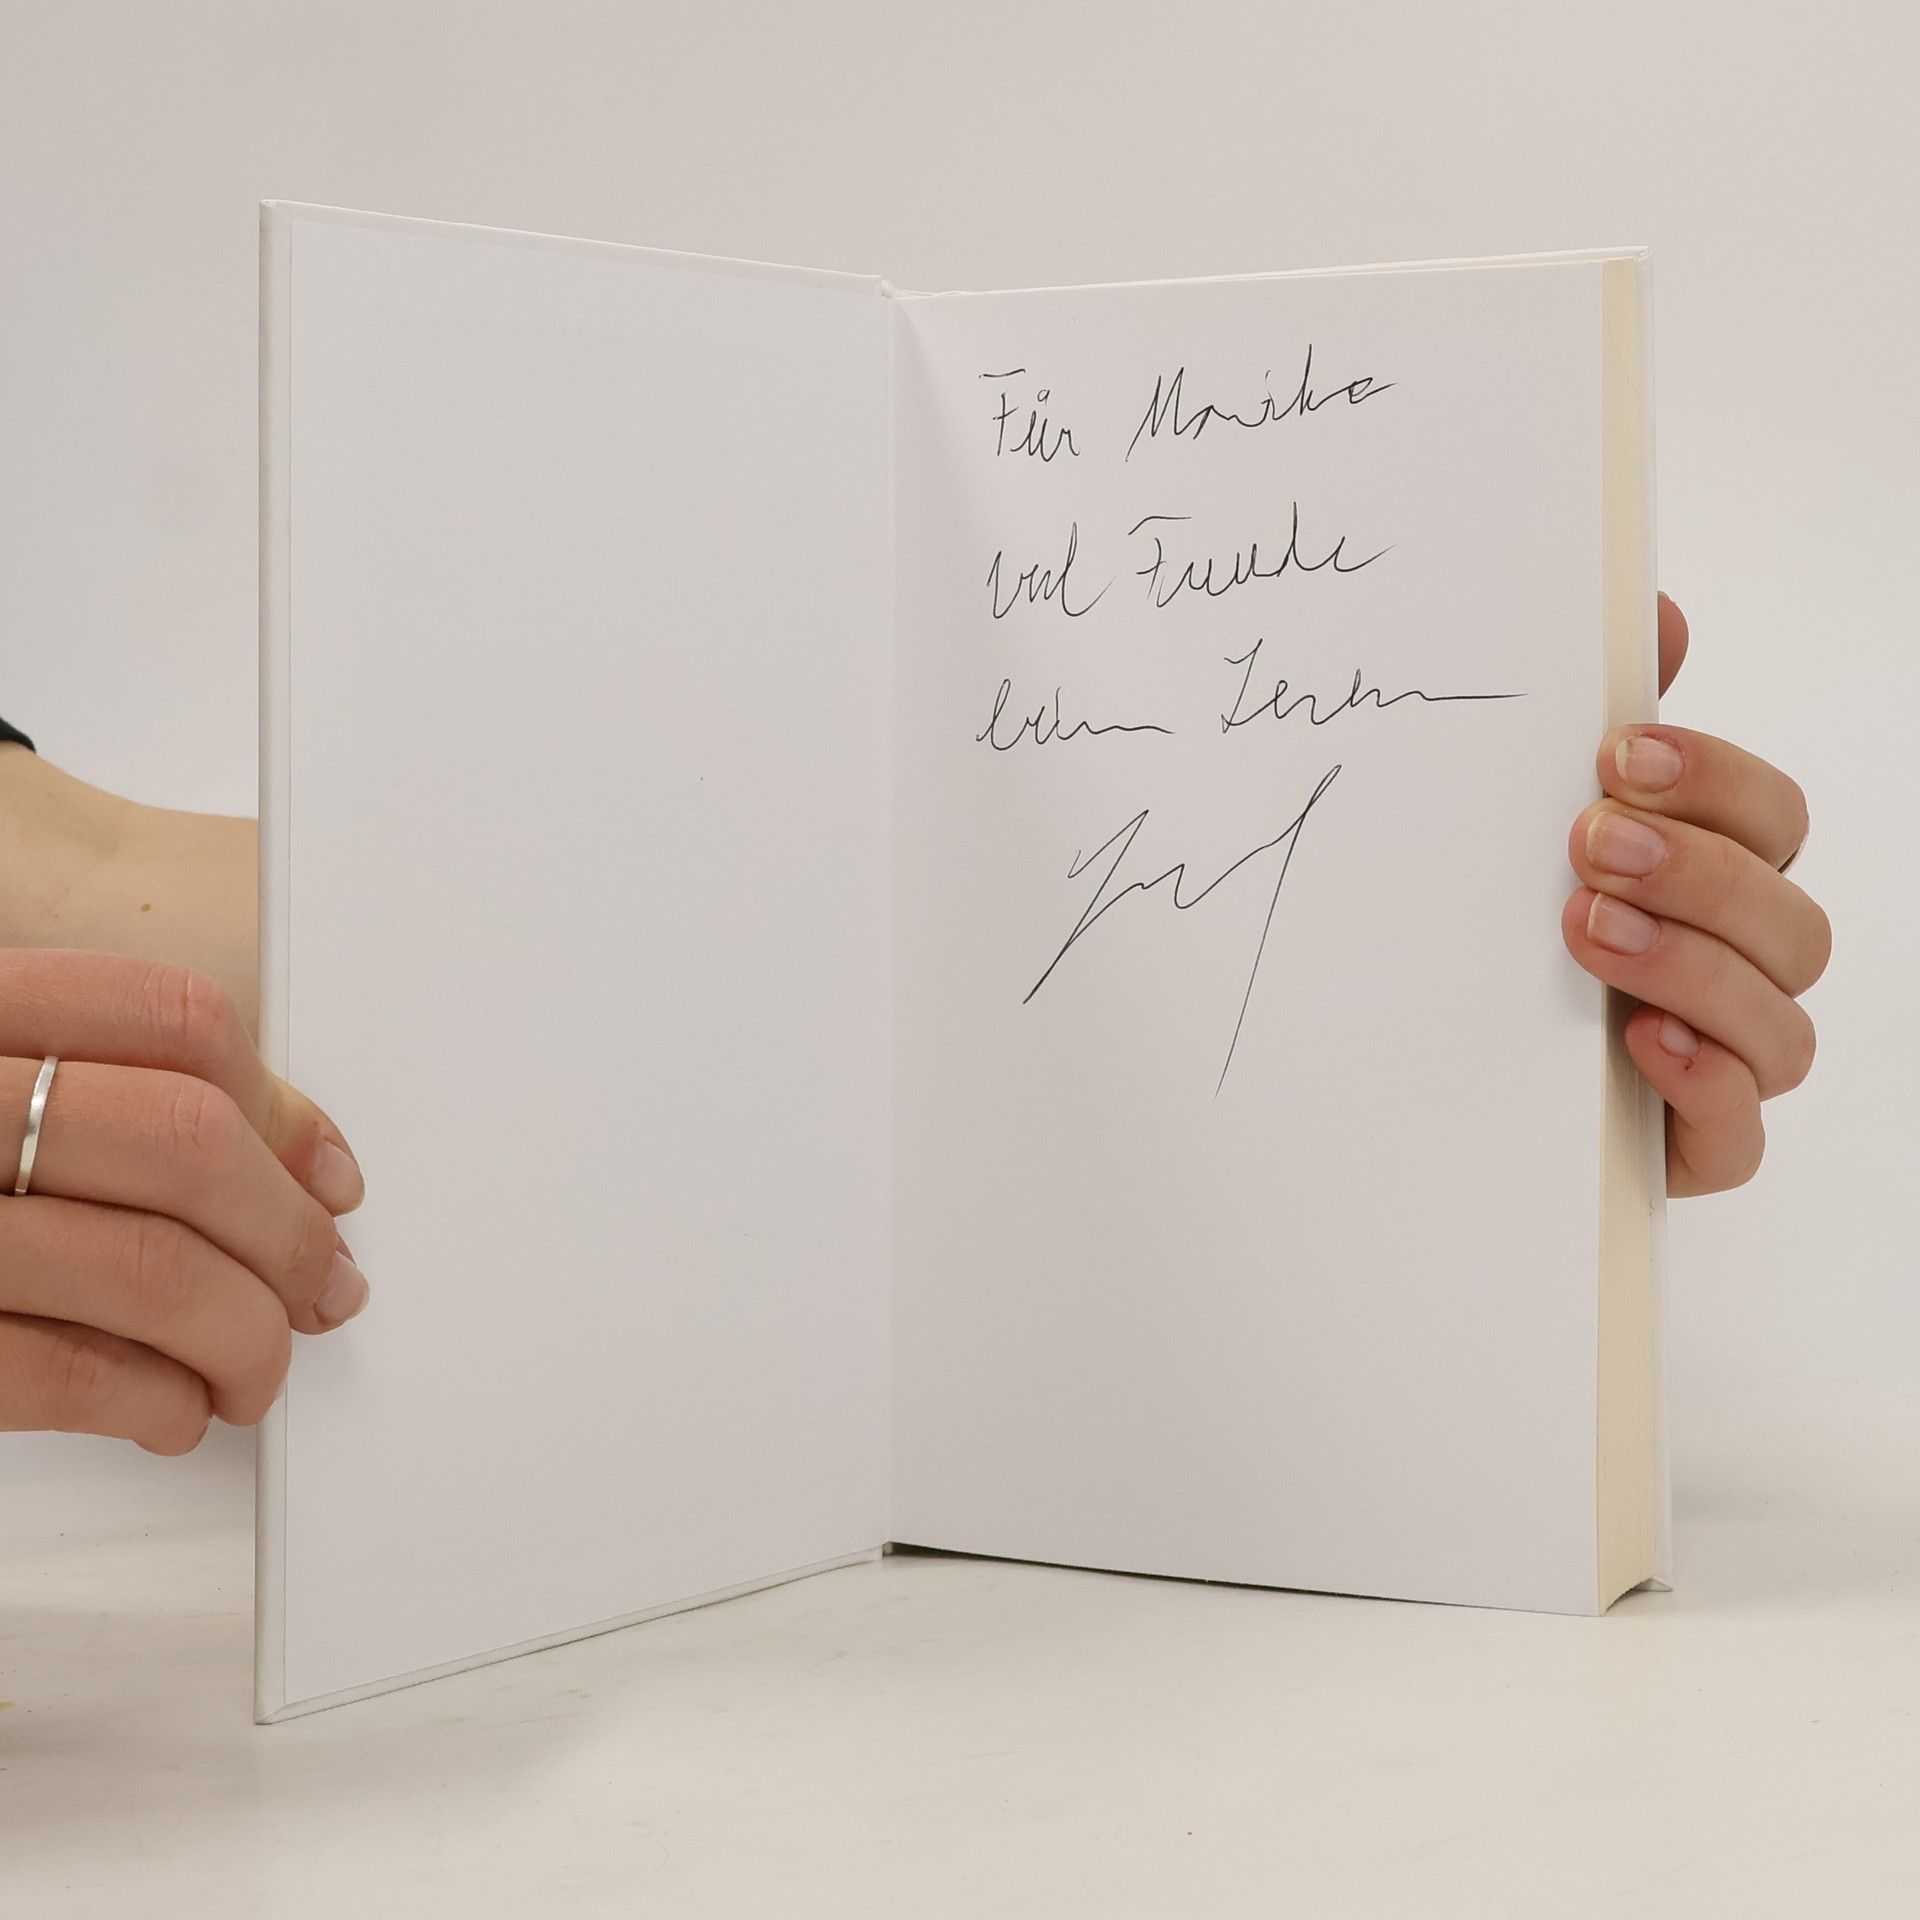 Für Monika
viel Freude
beim Lesen